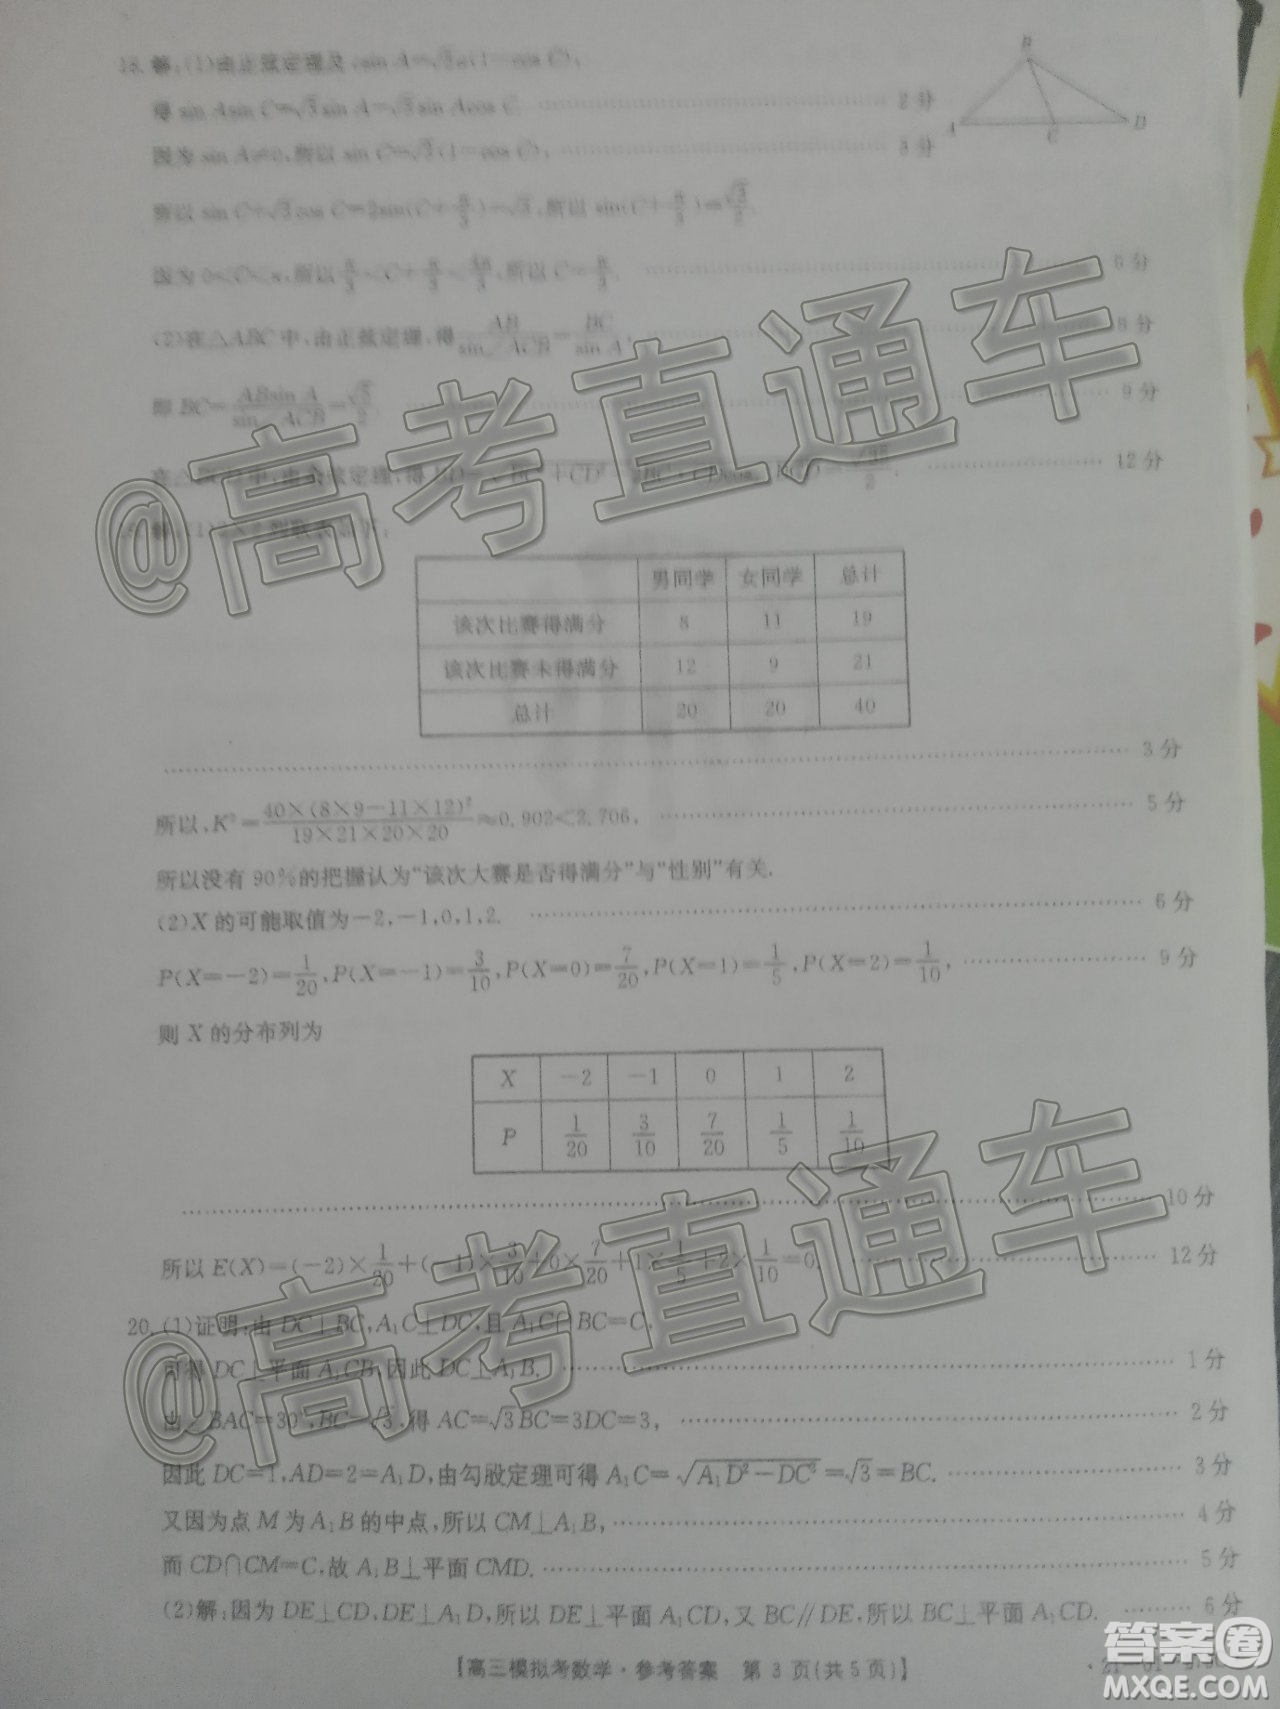 18. 解:(1)由正弦定理及 csin A=√3a(1-cos C),
得 sin Asin C=√3sin A-√3sin Acos C. 2分
因为 sin A≠0,所以 sin C=√3(1-cos C), 3分
所以 sin C+√3cos C=2sin(C+π/3)=√3,所以 sin(C+π/3)=√3/2.
因为 0<C<π,所以 π/3<C+π/3<4π/3,所以 C=π/3. 6分
(2)在△ABC 中,由正弦定理,得 AB/sin∠ACB=BC/sin A, 8分
即 BC=ABsin A/sin∠ACB= 9分
中,由余弦定理,得 12分
B
A C D
解:(1)2×2列联表如下:
男同学 女同学 总计
该次比赛得满分 8 11 19
该次比赛未得满分 12 9 21
总计 20 20 40
3分
所以,K²=40×(8×9-11×12)²/19×21×20×20≈0.902<2.706, 5分
所以没有 90%的把握认为“该次大赛是否得满分”与“性别”有关.
(2)X 的可能取值为-2,-1,0,1,2. 6分
P(X=-2)=1/20,P(X=-1)=3/10,P(X=0)=7/20,P(X=1)=1/5,P(X=2)=1/10, 9分
则 X 的分布列为
X -2 -1 0 1 2
P 1/20 3/10 7/20 1/5 1/10
10分
所以 E(X)=(-2)×1/20+(-1)×3/10+0×7/20+1×1/5+2×1/10=0. 12分
20. (1)证明:由 DC⊥BC,A₁C⊥DC,且 A₁C∩BC=C,
可得 DC⊥平面 A₁CB,因此 DC⊥A₁B. 1分
由∠BAC=30°,BC=√3,得 AC=√3BC=3DC=3, 2分
因此 DC=1,AD=2=A₁D,由勾股定理可得 A₁C=√(A₁D²-DC²)=√3=BC. 3分
又因为点 M 为 A₁B 的中点,所以 CM⊥A₁B, 4分
而 CD∩CM=C,故 A₁B⊥平面 CMD. 5分
(2)解:因为 DE⊥CD,DE⊥A₁D,所以 DE⊥平面 A₁CD,又 BC∥DE,所以 BC⊥平面 A₁CD. 6分
【高三模拟考数学·参考答案 第 3 页(共 5 页)】
@高考直通车
@高考直通车
答案圈
MXQE.COM